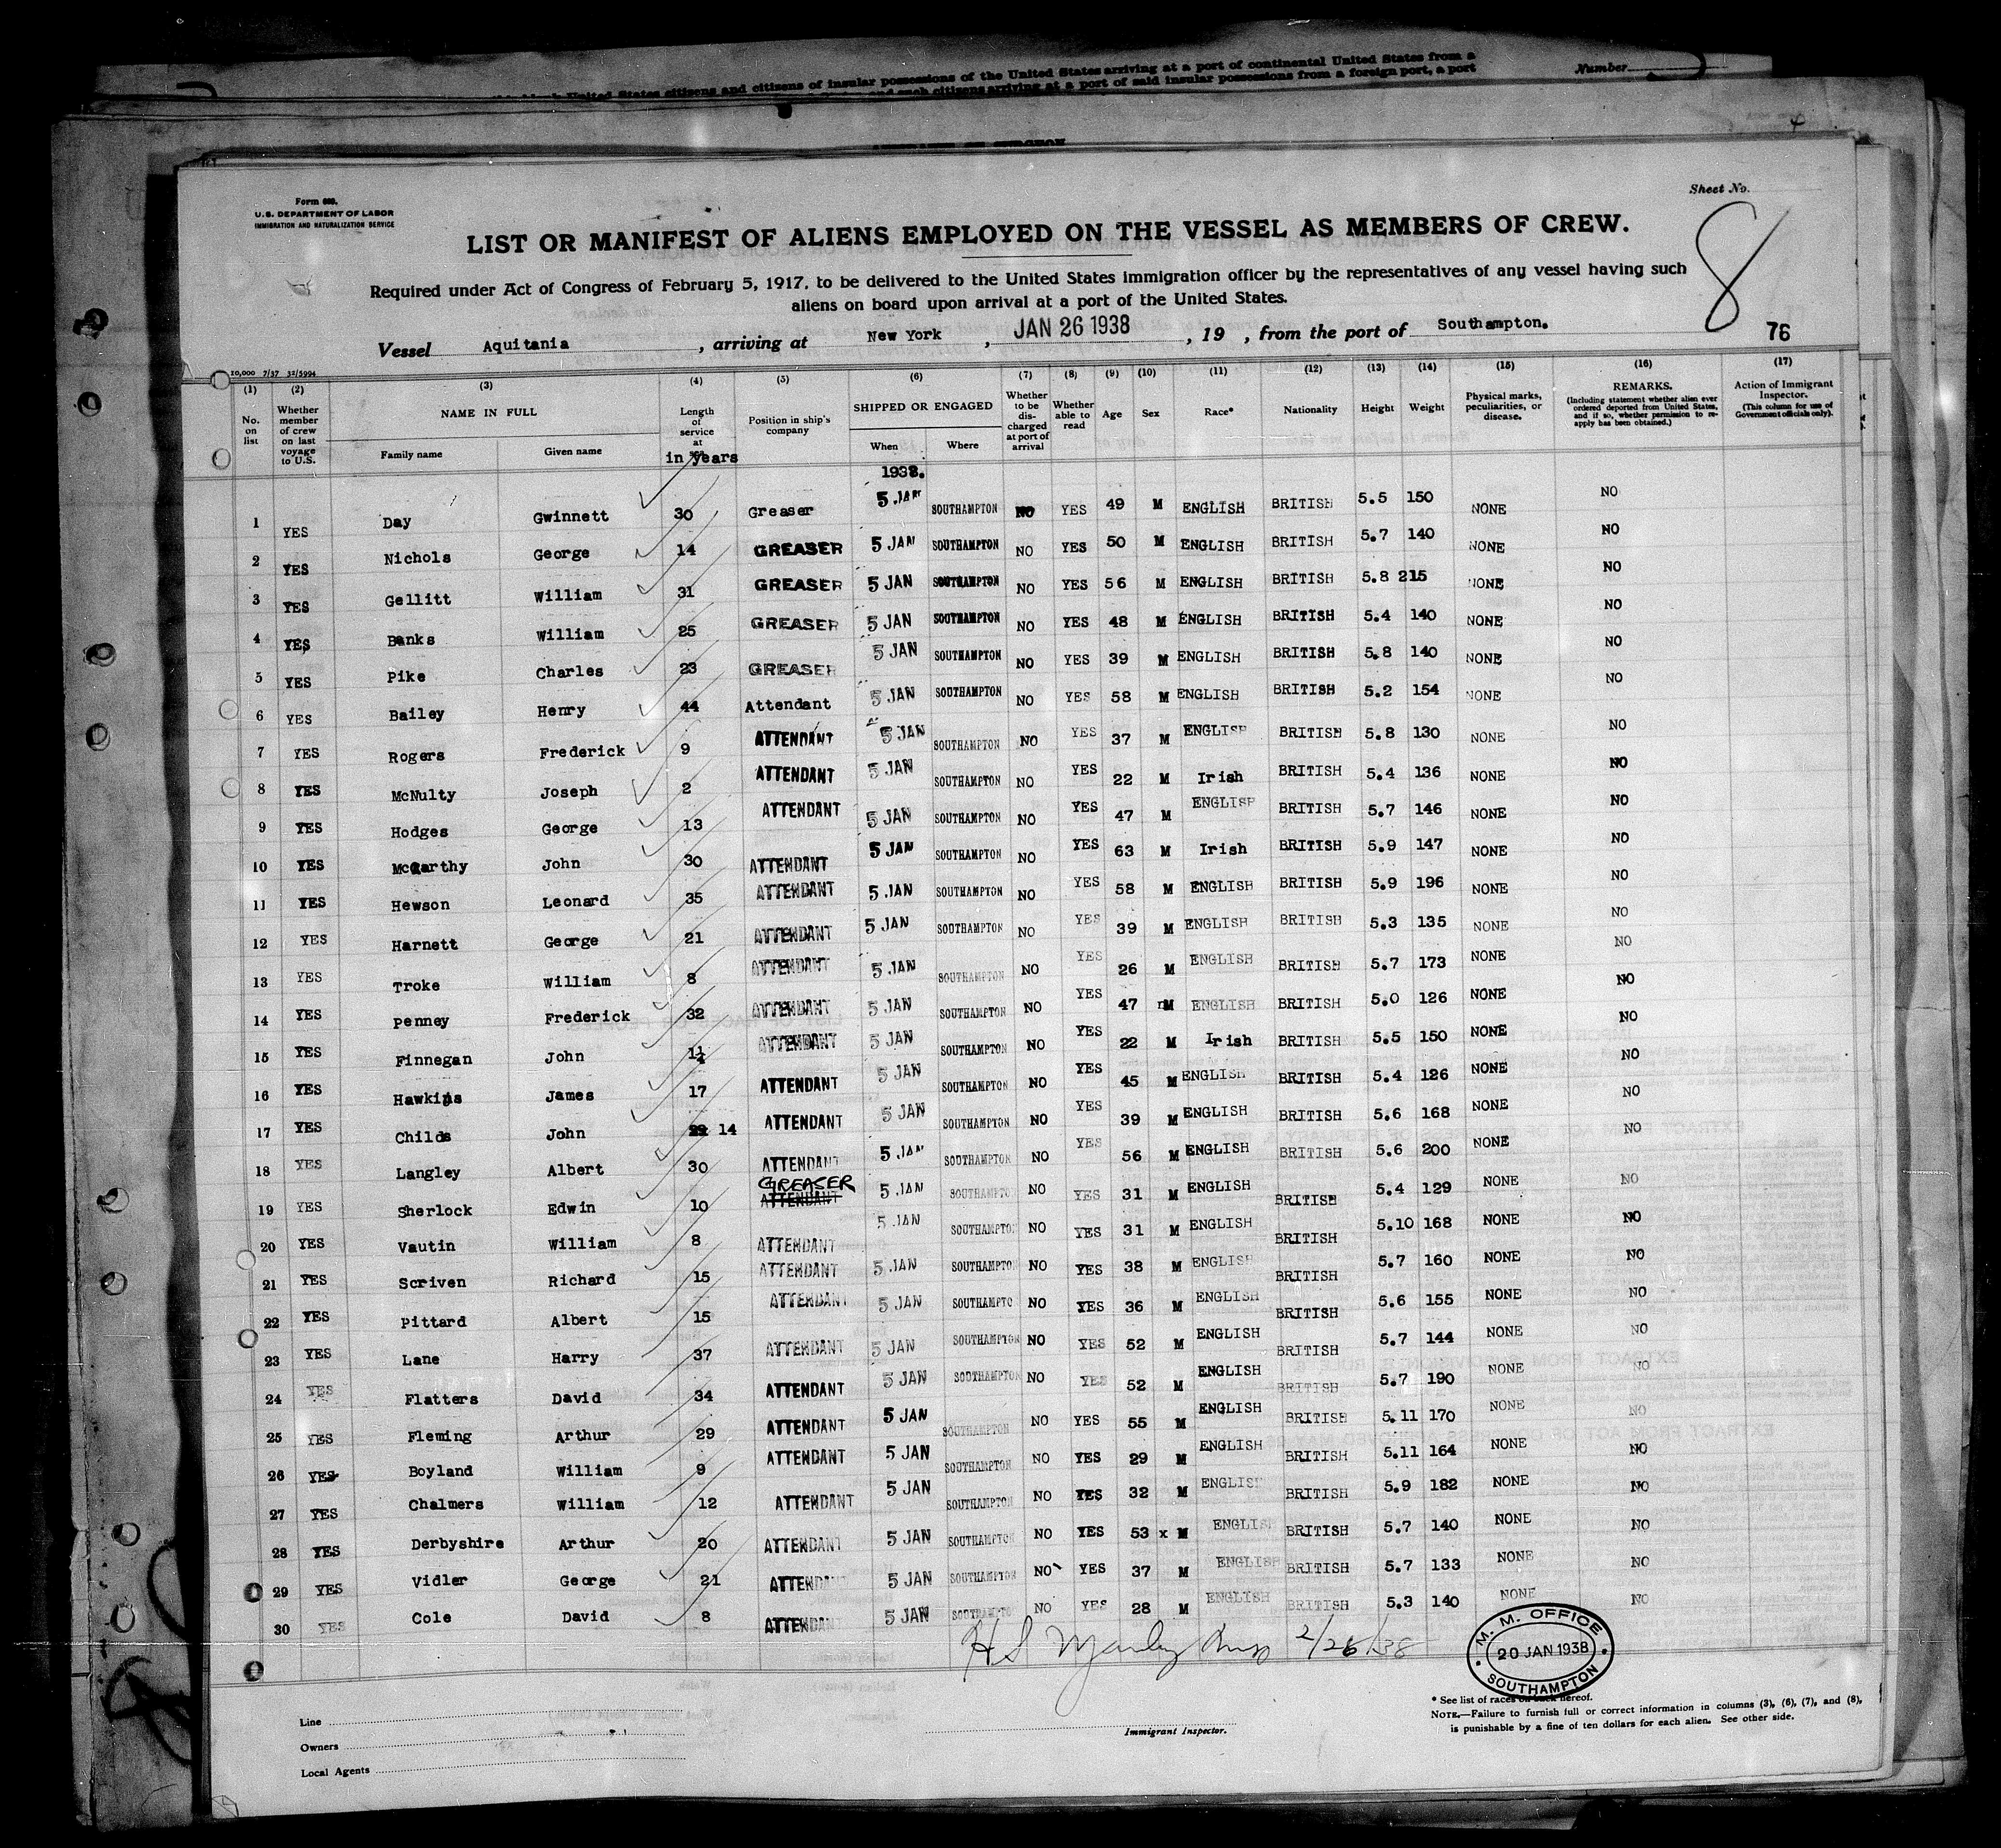 citizens and citizens of insular possessions of the United States arriving at a port of continental United States from a
such citizens arriving at a port of said insular possessions from a foreign port, a port
Number
Form 680.
U.S. DEPARTMENT OF LABOR
IMMIGRATION AND NATURALIZATION SERVICE
Sheet No.
8
LIST OR MANIFEST OF ALIENS EMPLOYED ON THE VESSEL AS MEMBERS OF CREW.
Required under Act of Congress of February 5, 1917, to be delivered to the United States immigration officer by the representatives of any vessel having such
aliens on board upon arrival at a port of the United States.
Vessel Aquitania, arriving at New York, JAN 26 1938, 19 , from the port of Southampton. 76
10,000 7/37 32/5994
(1) (2) (3) (4) (5) (6) (7) (8) (9) (10) (11) (12) (13) (14) (15) (16) (17)
No. on list
Whether member of crew on last voyage to U.S.
NAME IN FULL
Family name Given name
Length of service at sea
in years
Position in ship's company
SHIPPED OR ENGAGED
When Where
1938.
Whether to be discharged at port of arrival
Whether able to read
Age Sex Race* Nationality Height Weight
Physical marks, peculiarities, or disease.
REMARKS.
(Including statement whether alien ever ordered deported from United States, and if so, whether permission to reapply has been obtained.)
Action of Immigrant Inspector.
(This column for use of Government officials only).
1 YES Day Gwinnett 30 Greaser 5 JAN SOUTHAMPTON NO YES 49 M ENGLISH BRITISH 5.5 150 NONE NO
2 YES Nichols George 14 GREASER 5 JAN SOUTHAMPTON NO YES 50 M ENGLISH BRITISH 5.7 140 NONE NO
3 YES Gellitt William 31 GREASER 5 JAN SOUTHAMPTON NO YES 56 M ENGLISH BRITISH 5.8 215 NONE NO
4 YES Banks William 25 GREASER 5 JAN SOUTHAMPTON NO YES 48 M ENGLISH BRITISH 5.4 140 NONE NO
5 YES Pike Charles 23 GREASER 5 JAN SOUTHAMPTON NO YES 39 M ENGLISH BRITISH 5.8 140 NONE NO
6 YES Bailey Henry 44 Attendant 5 JAN SOUTHAMPTON NO YES 58 M ENGLISH BRITISH 5.2 154 NONE NO
7 YES Rogers Frederick 9 ATTENDANT 5 JAN SOUTHAMPTON NO YES 37 M ENGLISH BRITISH 5.8 130 NONE NO
8 YES McNulty Joseph 2 ATTENDANT 5 JAN SOUTHAMPTON NO YES 22 M Irish BRITISH 5.4 136 NONE NO
9 YES Hodges George 13 ATTENDANT 5 JAN SOUTHAMPTON NO YES 47 M ENGLISH BRITISH 5.7 146 NONE NO
10 YES McCarthy John 30 ATTENDANT 5 JAN SOUTHAMPTON NO YES 63 M Irish BRITISH 5.9 147 NONE NO
11 YES Hewson Leonard 35 ATTENDANT 5 JAN SOUTHAMPTON NO YES 58 M ENGLISH BRITISH 5.9 196 NONE NO
12 YES Harnett George 21 ATTENDANT 5 JAN SOUTHAMPTON NO YES 39 M ENGLISH BRITISH 5.3 135 NONE NO
13 YES Troke William 8 ATTENDANT 5 JAN SOUTHAMPTON NO YES 26 M ENGLISH BRITISH 5.7 173 NONE NO
14 YES penney Frederick 32 ATTENDANT 5 JAN SOUTHAMPTON NO YES 47 M ENGLISH BRITISH 5.0 126 NONE NO
15 YES Finnegan John ATTENDANT 5 JAN SOUTHAMPTON NO YES 22 M Irish BRITISH 5.5 150 NONE NO
16 YES Hawkins James 17 ATTENDANT 5 JAN SOUTHAMPTON NO YES 45 M ENGLISH BRITISH 5.4 126 NONE NO
17 YES Childs John 14 ATTENDANT 5 JAN SOUTHAMPTON NO YES 39 M ENGLISH BRITISH 5.6 168 NONE NO
18 YES Langley Albert 30 ATTENDANT 5 JAN SOUTHAMPTON NO YES 56 M ENGLISH BRITISH 5.6 200 NONE NO
19 YES Sherlock Edwin 10 GREASER ATTENDANT 5 JAN SOUTHAMPTO NO YES 31 M ENGLISH BRITISH 5.4 129 NONE NO
20 YES Vautin William 8 ATTENDANT 5 JAN SOUTHAMPTO NO YES 31 M ENGLISH BRITISH 5.10 168 NONE NO
21 YES Scriven Richard 15 ATTENDANT 5 JAN SOUTHAMPTO NO YES 38 M ENGLISH BRITISH 5.7 160 NONE NO
22 YES Pittard Albert 15 ATTENDANT 5 JAN SOUTHAMPTO NO YES 36 M ENGLISH BRITISH 5.6 155 NONE NO
23 YES Lane Harry 37 ATTENDANT 5 JAN SOUTHAMPTON NO YES 52 M ENGLISH BRITISH 5.7 144 NONE NO
24 YES Flatters David 34 ATTENDANT 5 JAN SOUTHAMPTON NO YES 52 M ENGLISH BRITISH 5.7 190 NONE NO
25 YES Fleming Arthur 29 ATTENDANT 5 JAN SOUTHAMPTON NO YES 55 M ENGLISH BRITISH 5.11 170 NONE NO
26 YES Boyland William 9 ATTENDANT 5 JAN SOUTHAMPTON NO YES 29 M ENGLISH BRITISH 5.11 164 NONE NO
27 YES Chalmers William 12 ATTENDANT 5 JAN SOUTHAMPTON NO YES 32 M ENGLISH BRITISH 5.9 182 NONE NO
28 YES Derbyshire Arthur 20 ATTENDANT 5 JAN SOUTHAMPTON NO YES 53 x M ENGLISH BRITISH 5.7 140 NONE NO
29 YES Vidler George 21 ATTENDANT 5 JAN SOUTHAMPTON NO YES 37 M ENGLISH BRITISH 5.7 133 NONE NO
30 YES Cole David 8 ATTENDANT 5 JAN SOUTHAMPTO NO YES 28 M ENGLISH BRITISH 5.3 140 NONE NO
H S 2/26/38
M. M. OFFICE
20 JAN 1938
SOUTHAMPTON
Line
Owners
Local Agents
Immigrant Inspector.
* See list of races on back hereof.
NOTE.—Failure to furnish full or correct information in columns (3), (6), (7), and (8),
is punishable by a fine of ten dollars for each alien. See other side.